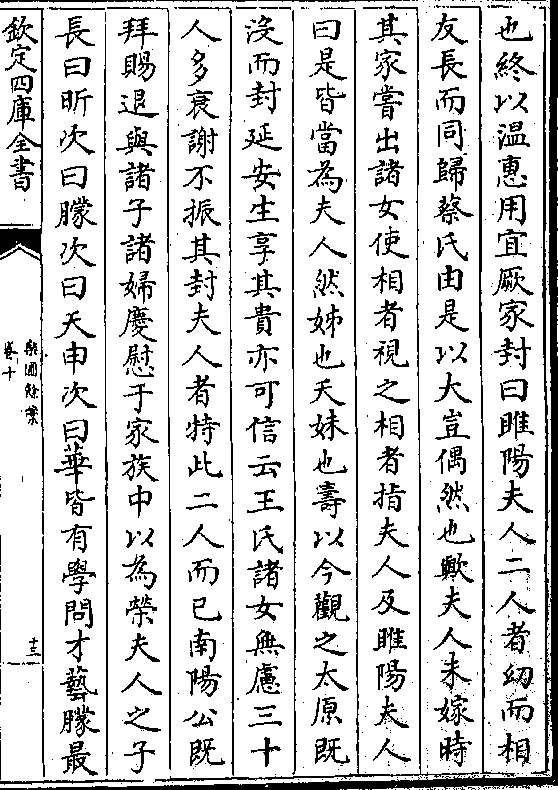 也終以温惠用宜厥家封曰睢陽夫人二人者幼而相
友長而同歸蔡氏由是以大豈偶然也歟夫人未嫁時
其家嘗出諸女使相者視之相者指夫人及睢陽夫人
曰是皆當為夫人然姊也夭妹也壽以今觀之太原既
沒而封延安生享其貴亦可信云王氏諸女無慮三十
人多衰謝不振其封夫人者特此二人而已南陽公既
拜賜退與諸子諸婦慶慰于家族中以為榮夫人之子
長曰昕次曰朦次曰天申次曰華皆有學問才藝朦最
欽定四庫全書
樂圃餘藁
卷十
十三